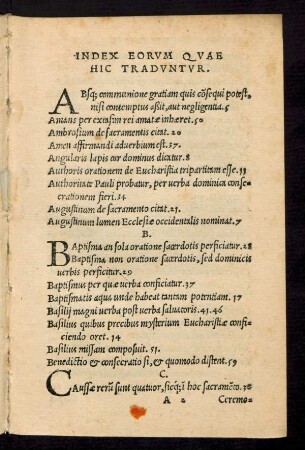 INDEX EORVM QVAE
HIC TRADVNTVR.
ABsq; communione gratiam quis cōsequi potest,
nisi contemptus aßit, aut negligentia.5
Amans per excessum rei amatæ inhæret.50
Ambrosium de sacramentis citat. 20
Amen affirmandi aduerbium est.37.
Angularis lapis cur dominus dicatur. 8
Authoris orationem de Eucharistia tripartitam esse.33
Authoritate Pauli probatur, per uerba dominica conse-
crationem fieri.34
Augustinum de sacramento citat.21.
Augustinum lumen Ecclesiæ occidentalis nominat.7
B.
BAptisma an sola oratione sacerdotis perficiatur.28
Baptisma non oratione sacerdotis, sed dominicis
uerbis perficitur.29
Baptismus per quæ uerba conficiatur. 37
Baptismatis aqua unde habeat tantam potentiam. 37
Basilij magni uerba post uerba saluatoris.45.46
Basilius quibus precibus mysterium Eucharistiæ confi-
ciendo oret. 14
Basilius missam composuit. 51.
Benedictio et consecratio si, et quomodo distent. 59
C.
CAussæ rerū sunt quatuor, sicq; ī hoc sacramēto. 38
A 2 Ceremo-